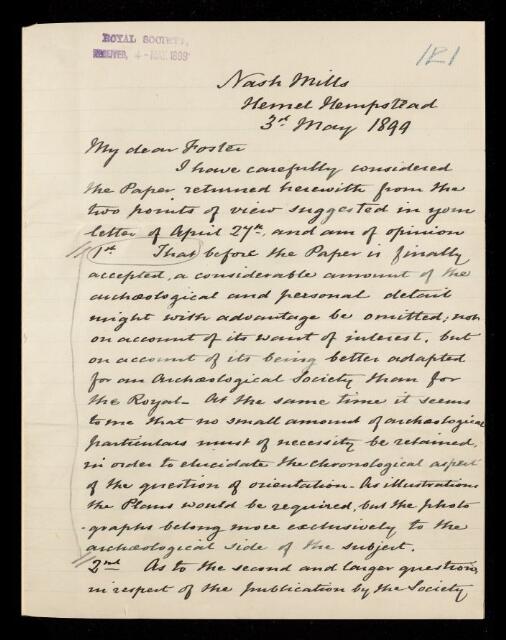 ROYAL SOCIETY.
RECEIVED, 4-MAY.1899
121
Nash Mills
Hemel Hempstead
3rd May 1899
My dear Foster
I have carefully considered
the Paper returned herewith from the
two points of view suggested in your
letter of April 27th, and am of opinion
1st That before the Paper is finally
accepted, a considerable amount of the
archæological and personal detail
might with advantage be omitted; not
on account of its want of interest, but
on account of its being better adapted
for an Archæological Society than for
the Royal - At the same time it seems
to me that no small amount of archæological
particulars must of necessity be retained,
in order to elucidate the chronological aspect
of the question of orientation - As illustrations
the Plans would be required, but the photo
-graphs belong more exclusively to the
archæological side of the subject.
2nd As to the second and larger question,
in respect of the publication by the Society